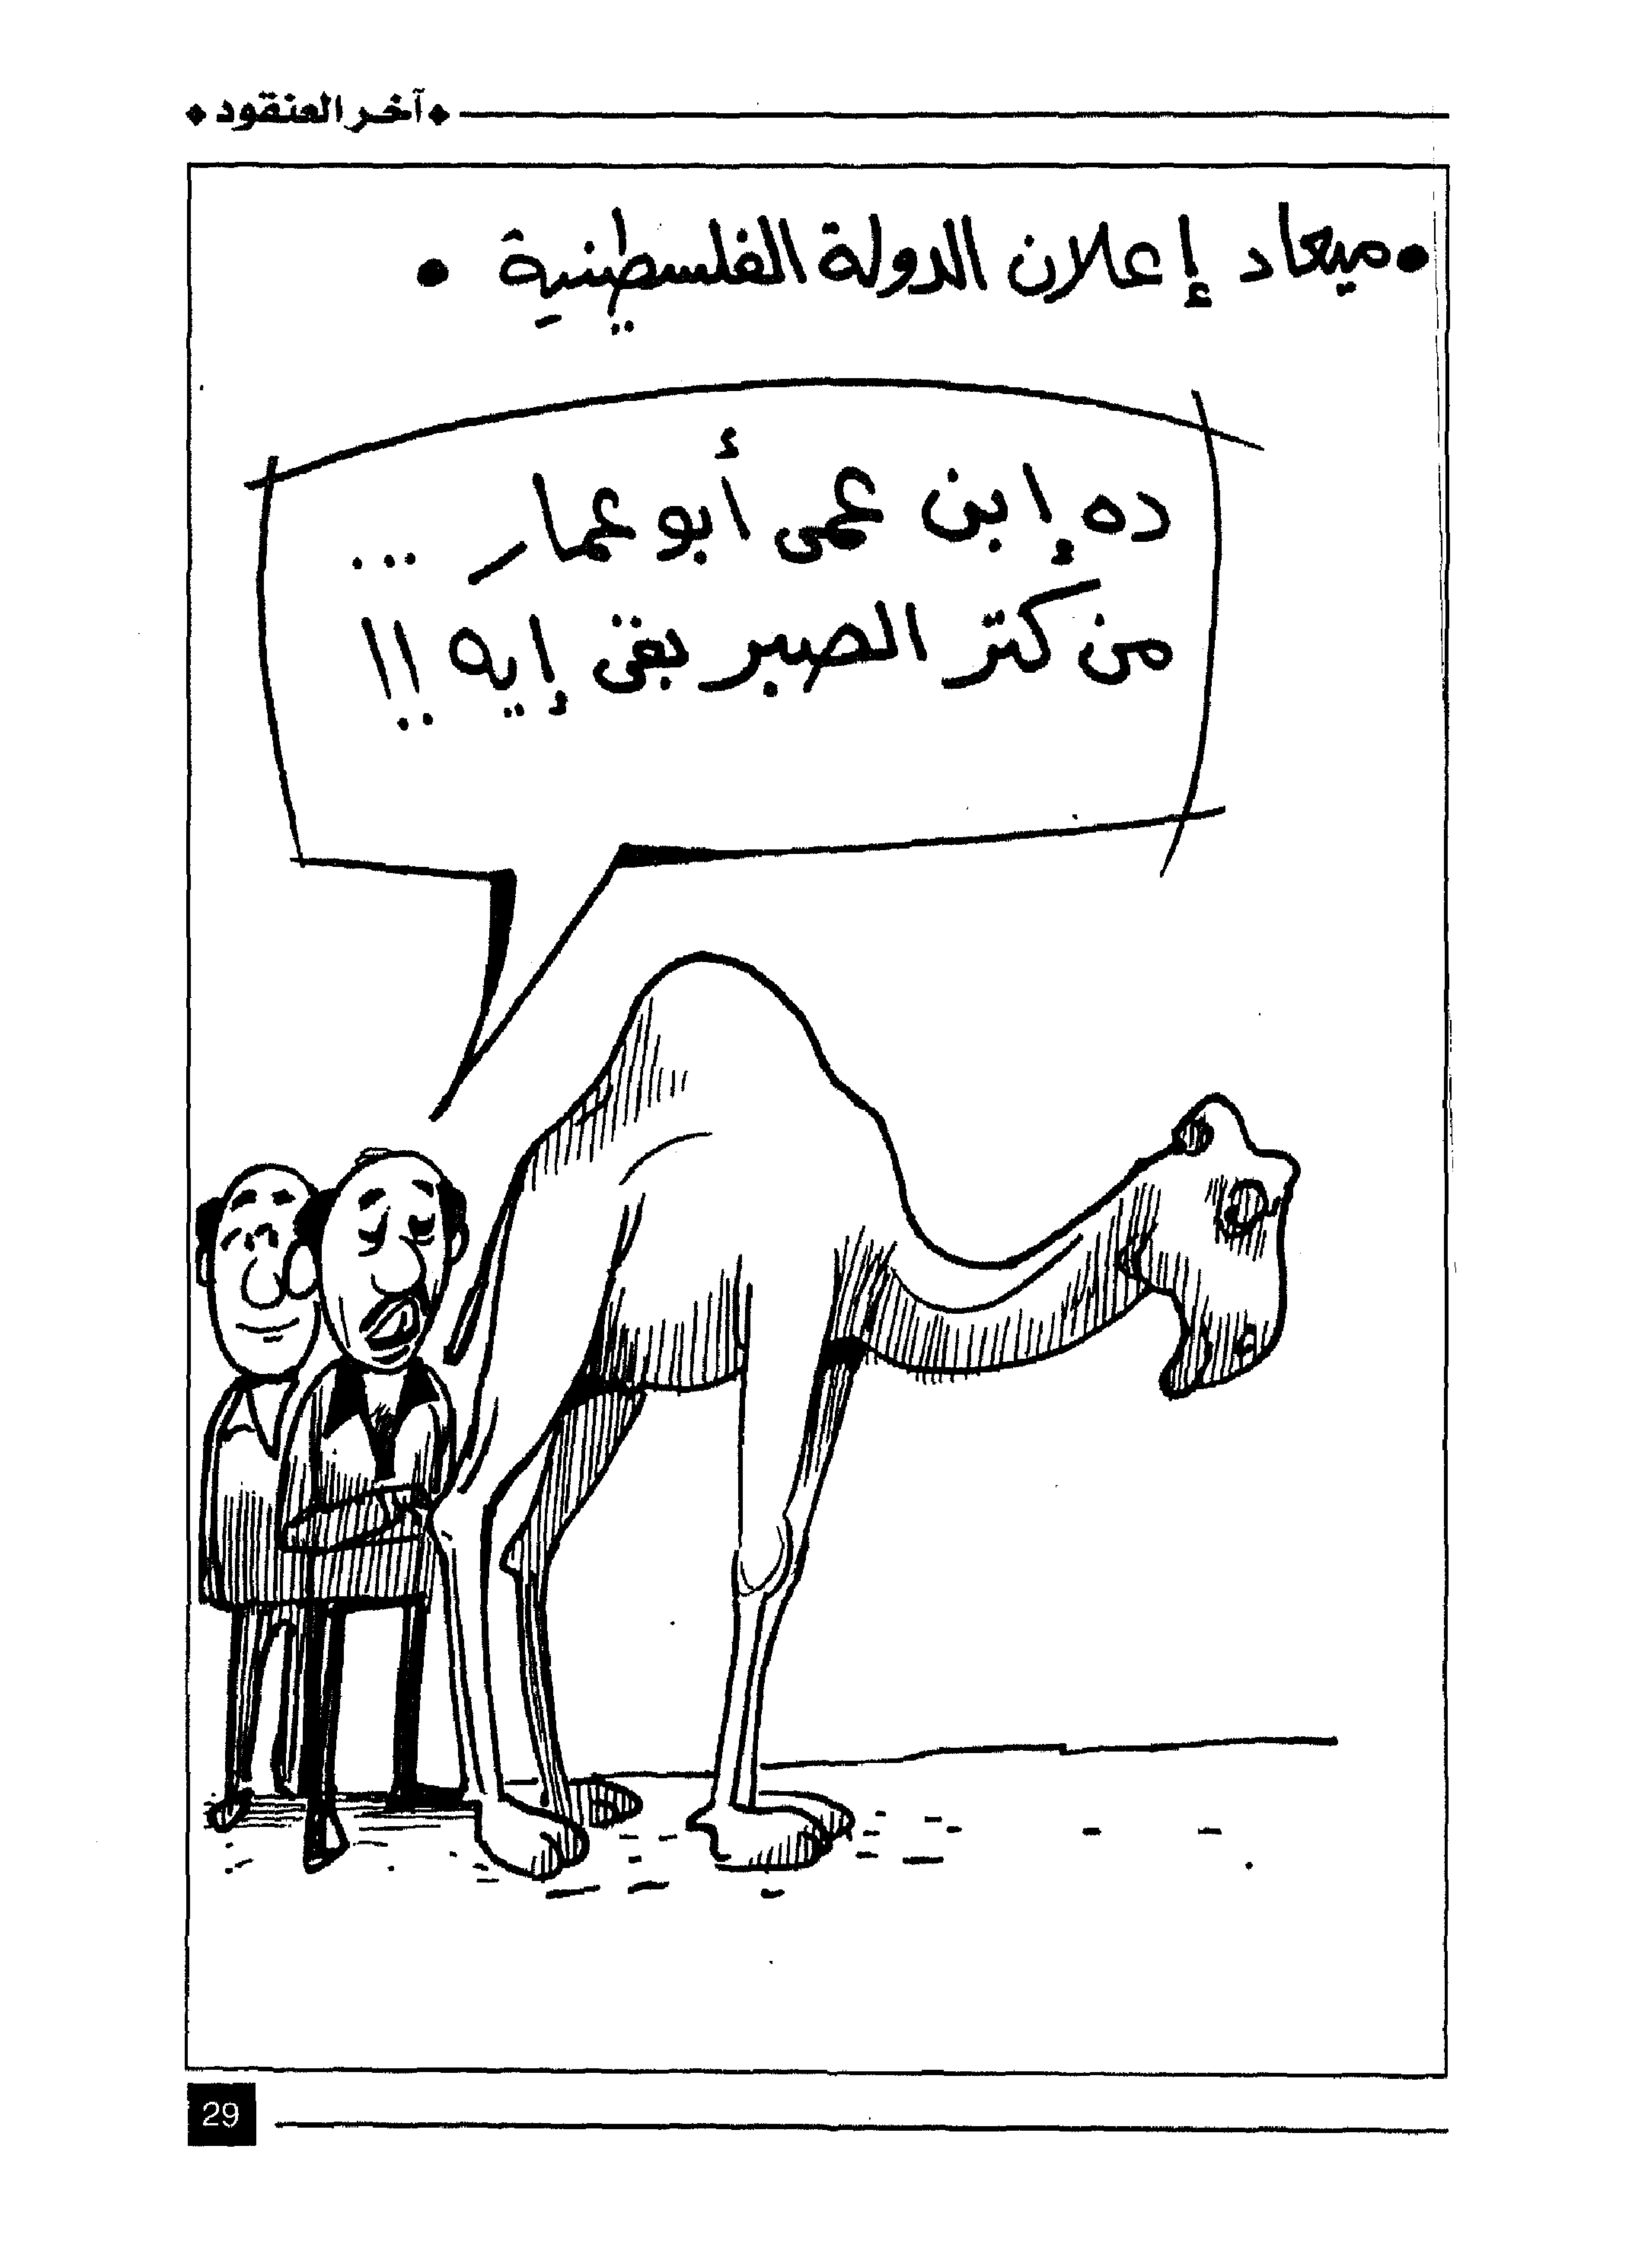 آخر العنقود
• ميعاد إعلان الدولة الفلسطينية •
ده إبن عمى أبو عمار ...
من كتر الصبر بقى إيه !!
29